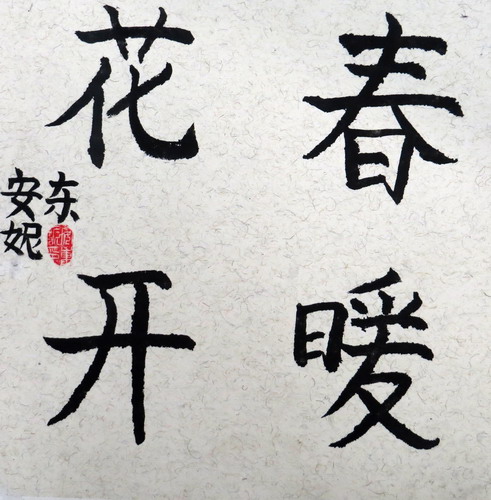 春暖
花开
东
安妮